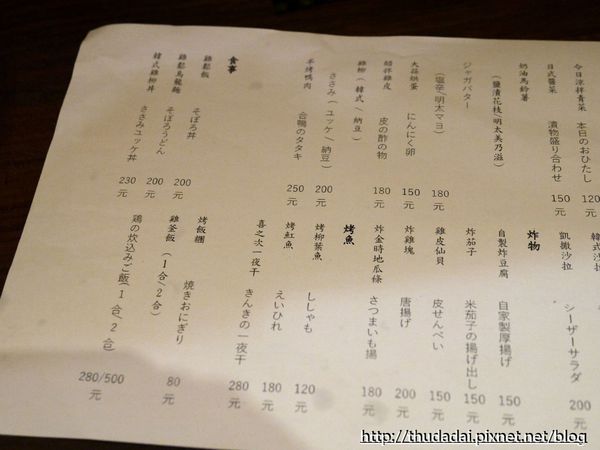 今日涼拌青菜　本日のおひたし　120元
日式醬菜　漬物盛り合わせ　150元
奶油馬鈴薯
(鹽漬花枝/明太美乃滋)
ジャガバター
(塩辛/明太マヨ)　180元
大蒜烘蛋　にんにく卵　150元
醋拌雞皮　皮の酢の物　180元
雞柳(韓式/納豆)
ささみ(ユッケ/納豆)　200元
半烤鴨肉　合鴨のタタキ　250元
食事
雞鬆飯　そぼろ丼　200元
雞鬆烏龍麵　そぼろうどん　200元
韓式雞柳丼　ささみユッケ丼　230元
韓式沙拉
凱撒沙拉　シーザーサラダ　200元
炸物
自製炸豆腐　自家製厚揚げ　150元
炸茄子　米茄子の揚げ出し　150元
雞皮仙貝　皮せんべい　150元
炸雞塊　唐揚げ　200元
炸金時地瓜條　さつまいも揚　180元
烤魚
烤柳葉魚　ししゃも　120元
烤魟魚　えいひれ　180元
喜之次一夜干　きんきの一夜干　280元
烤飯糰　焼きおにぎり　80元
雞釜飯(1合/2合)
鶏の炊込みご飯(1合/2合)　280/500元
http://thudadai.pixnet.net/blog